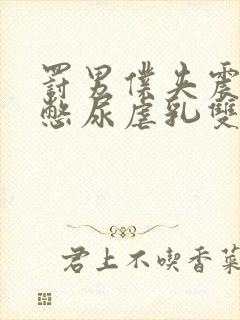 罰男僕失震
憋尿虐乳雙
君上不喫香菜